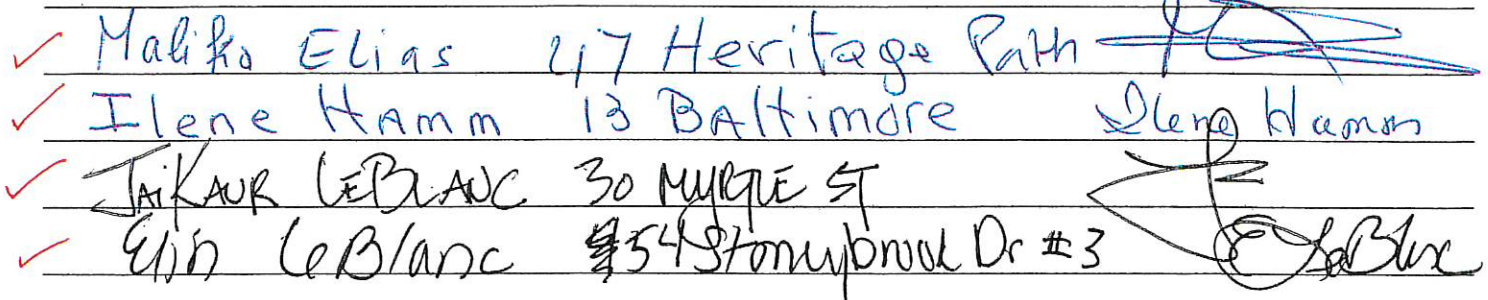 Malika Elias 47 Heritage Path
Ilene Hamm 13 Baltimore Ilene Hamm
JAIKAUR LEBLANC 30 MYRTLE ST
Elin LeBlanc 54 Stoneybrook Dr #3 E LeBlanc